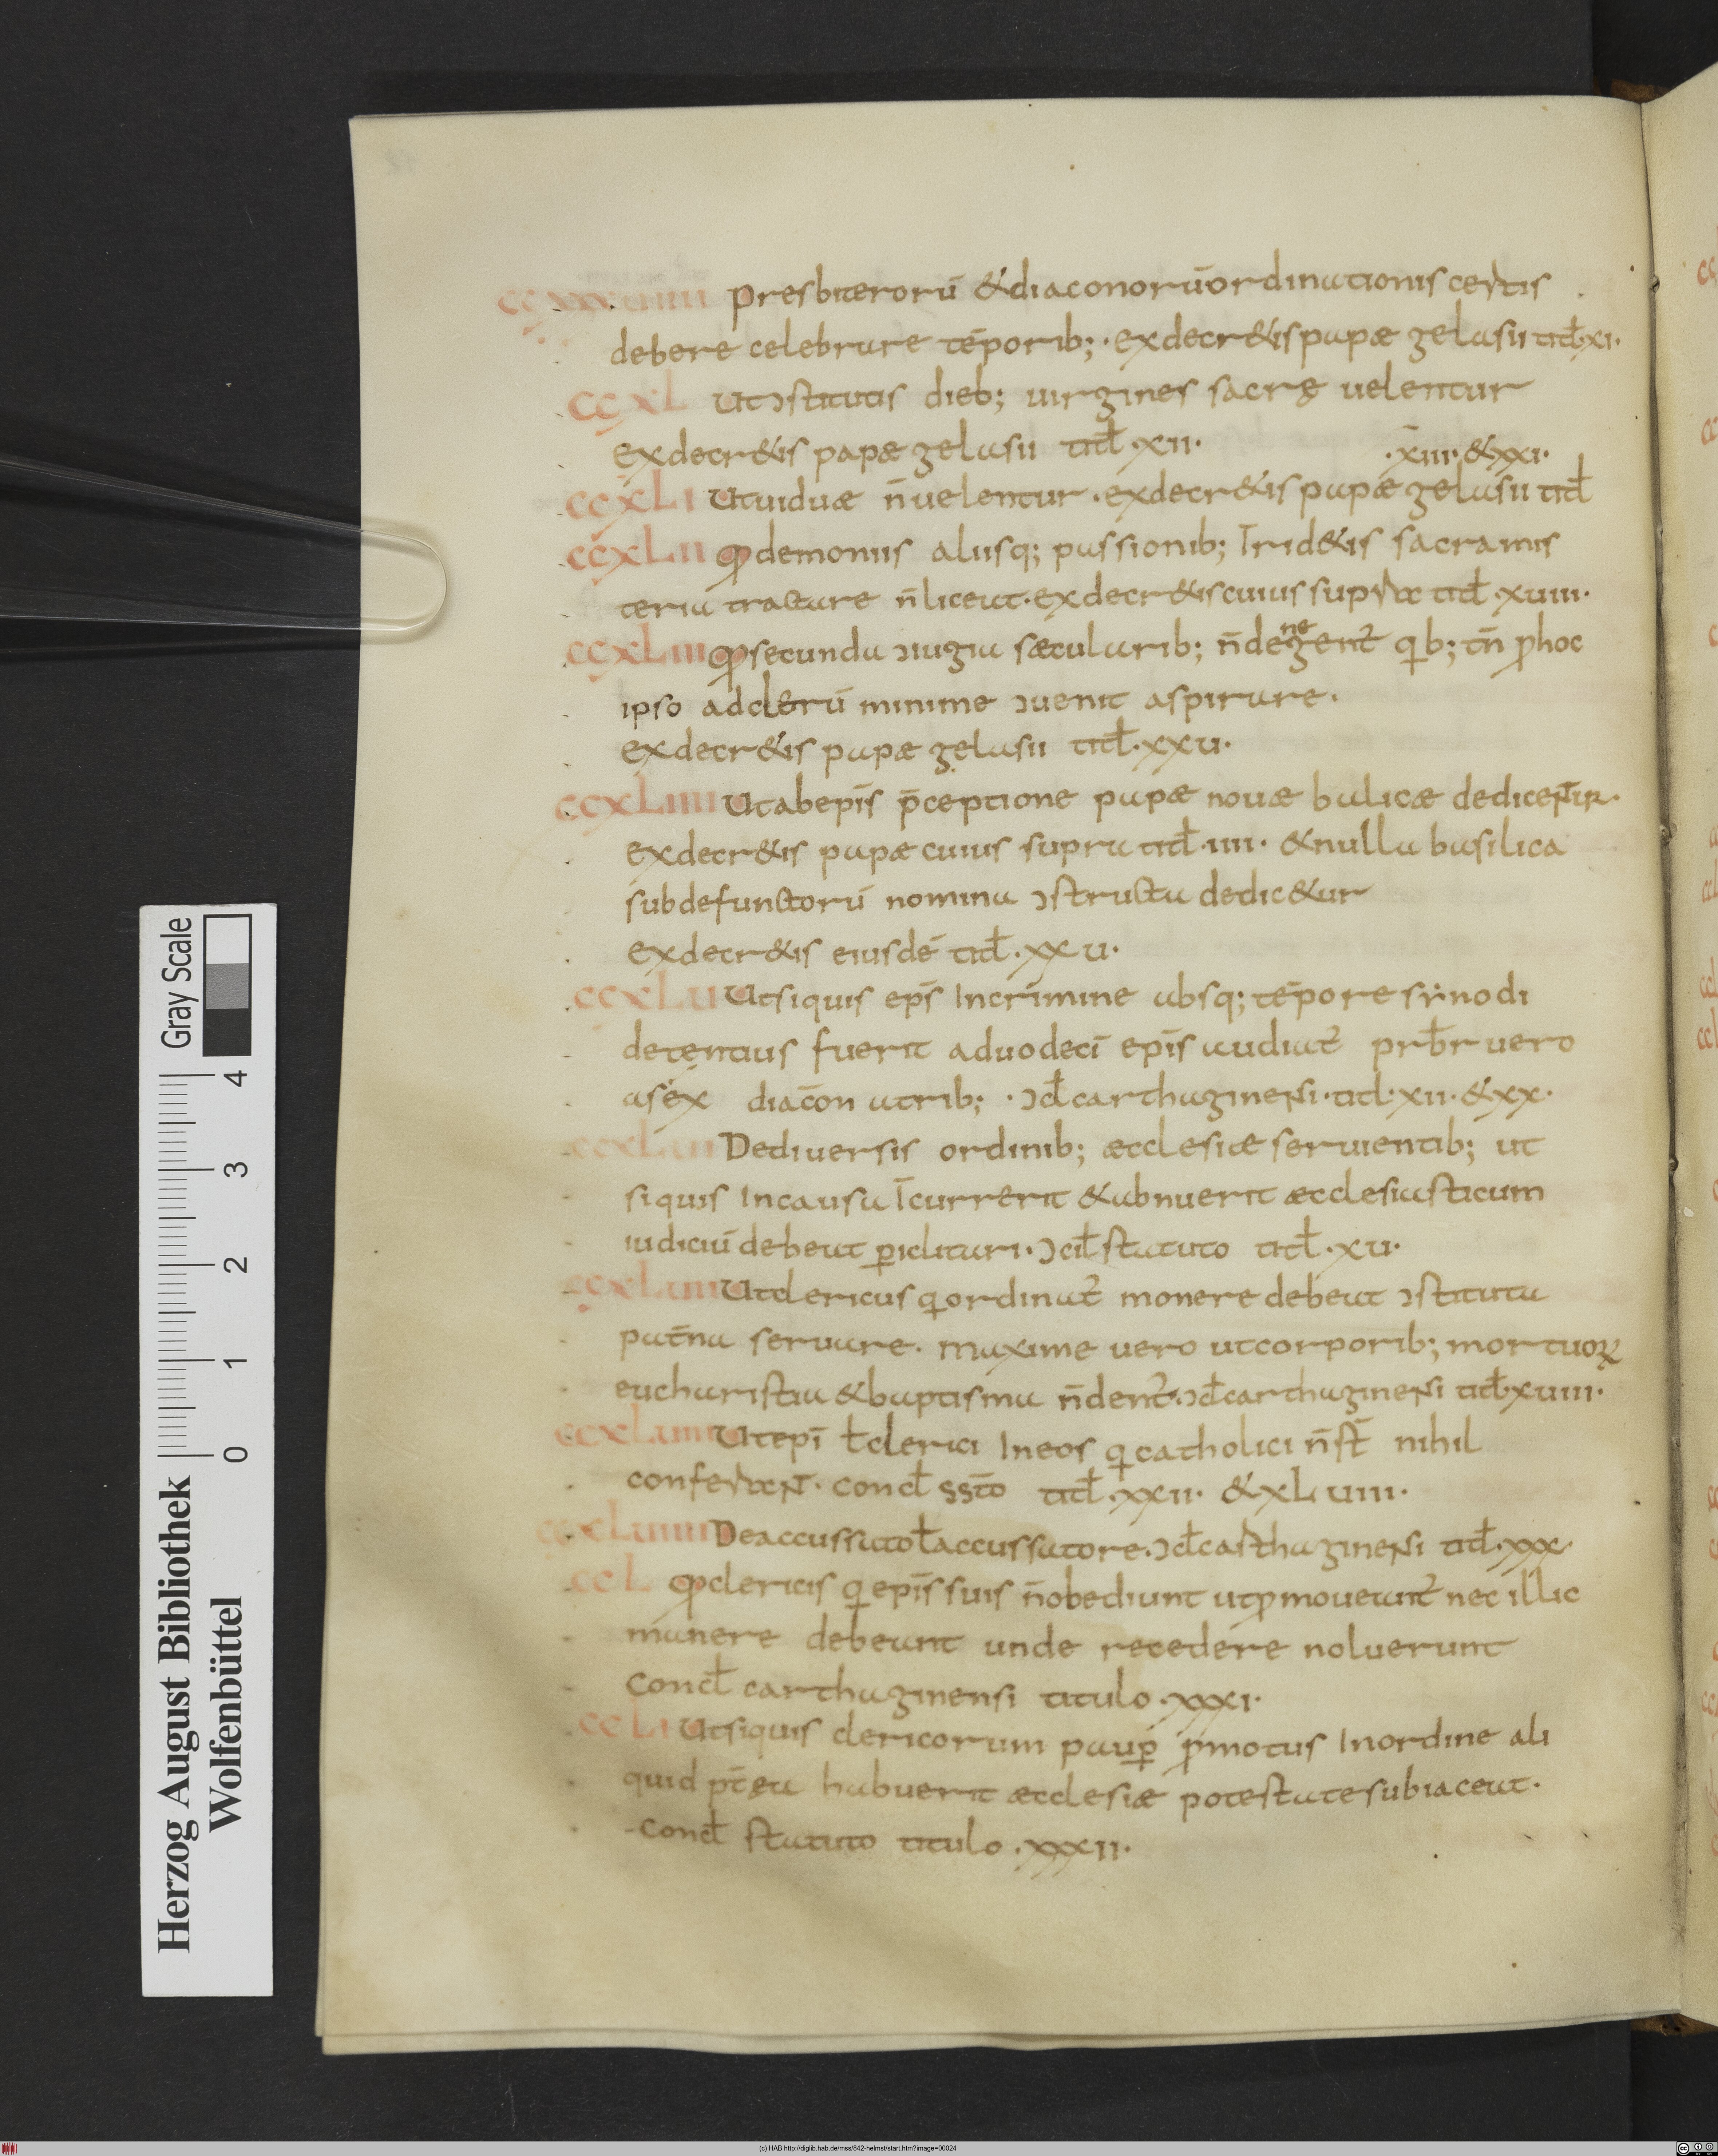 CCXXXVIIII Presbiterorū & diaconorū ordinationis certis
debere celebrare tēporib; · ex decr&is papæ gelasii titł · xi ·
CCXL Ut ɔstitutis dieb; uirgines sacrę uelentur
ex decr&is papæ gelasii titł · xii ·
· xiii · & xxi ·
CCXLI Ut uiduæ n̄ uelentur · ex decr&is papæ gelasii titł
CCXLII Q demoniis aliisq; passionib; īrid&is sacramis
teria tractare n̄ liceat · ex decr&is cuius supra titł · xviiii ·
CCXLIII Q secunda ɔiugia sæcularib; n̄ denegent̄ qib; tn̄ p hoc
ipso ad clerū minime ɔuenit aspirare ·
ex decr&is papæ gelasii titł · xxv ·
CCXLIIII Ut ab ep̄is p̄ceptione papæ nouæ balicæ dedicentur ·
ex decr&is papæ cuius supra titł · iiii · & nulla basilica
sub defunctorū nomina ɔstructa dedic&ur
ex decr&is eiusdē titł · xxv ·
CCXLV Ut siquis ep̄s In crimine absq; tēpore synodi
detentus fuerit a duodecī ep̄is audiat̄ prb̄r uero
a sex diacōn a trib; · ɔcł carthaginensi · titł · xii · & xx ·
CCXLVI De diuersis ordinib; æcclesiæ seruientib; ut
siquis In causa īcurrerit & abnuerit æcclesiasticum
iudiciū debeat ꝑiclitari · ɔcił statuto titł · xv ·
CCXLVII Ut clericus q ordinat̄ monere debeat ɔstituta
pat̄na seruare · maxime uero ut corporib; mortuoꝝ
eucharistia & baptisma n̄ dent̄ · ɔcł carthaginensi titł · xviiii ·
CCXLVIII Ut ep̄i ł clerici In eos q catholici n̄ st̄ nihil
conferant · concł sst̄o titł · xxii · & xLviiii ·
CCXLVIIII De accussato ł accussatore · ɔcł carthaginensi titł · xxx
CCL Q clericis q ep̄is suis n̄ obediunt ut ꝓmoueant̄ nec illic
manere debeant unde recedere noluerunt
concł carthaginensi titulo · xxxi ·
CCLI Ut siquis clericorum pauꝑ ꝓmotus In ordine ali
quid pt̄ea habuerit æcclesiæ potestate subiaceat ·
concł statuto titulo · xxxii ·
Herzog August Bibliothek
Wolfenbüttel
0 1 2 3 4
Gray Scale
(c) HAB http://diglib.hab.de/mss/842-helmst/start.htm?image=00024